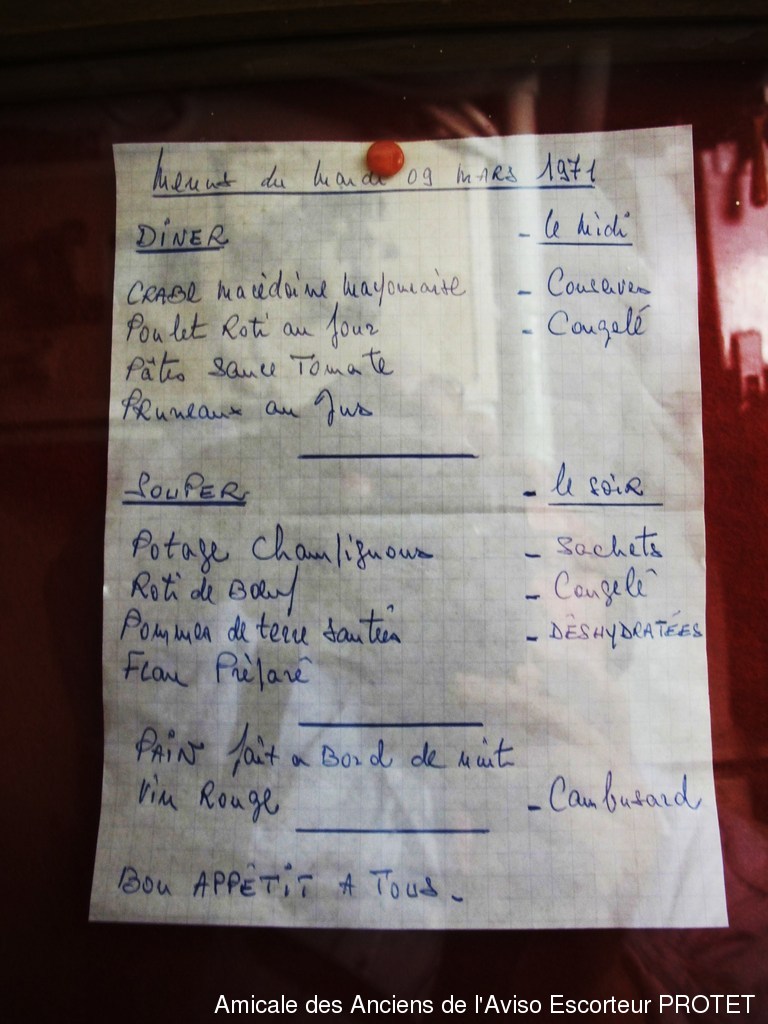 Menus du Mardi 09 MARS 1971
DÎNER - le Midi
CRABE Macédoine Mayonnaise - Conserves
Poulet Roti au four - Congelé
Pâtes Sauce Tomate
PRuneaux au Jus
SOUPER - le SOIR
Potage Champignons - Sachets
Roti de Bœuf - Congelé
Pommes de terre Sautées - DÉSHYDRATÉES
Flan Préparé
PAIN fait a Bord de nuit
Vin Rouge - Cambusard
Bon APPÊTIT A TOUS.
Amicale des Anciens de l'Aviso Escorteur PROTET